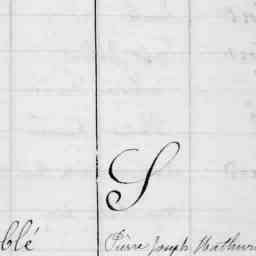 S
blé Pierre Joseph Mathur